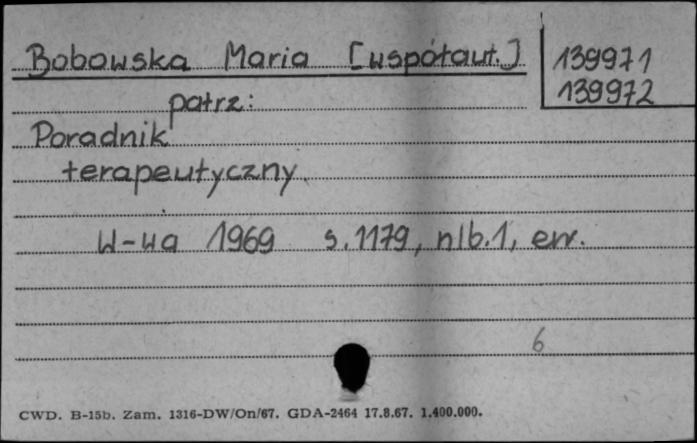 Bobowska Maria [współaut.] 139971
139972
patrz:
Poradnik
terapeutyczny.
W-wa 1969 s. 1179, nlb. 1, err.
6
CWD. B-15b. Zam. 1316-DW/On/67. GDA-2464 17.8.67. 1.400.000.